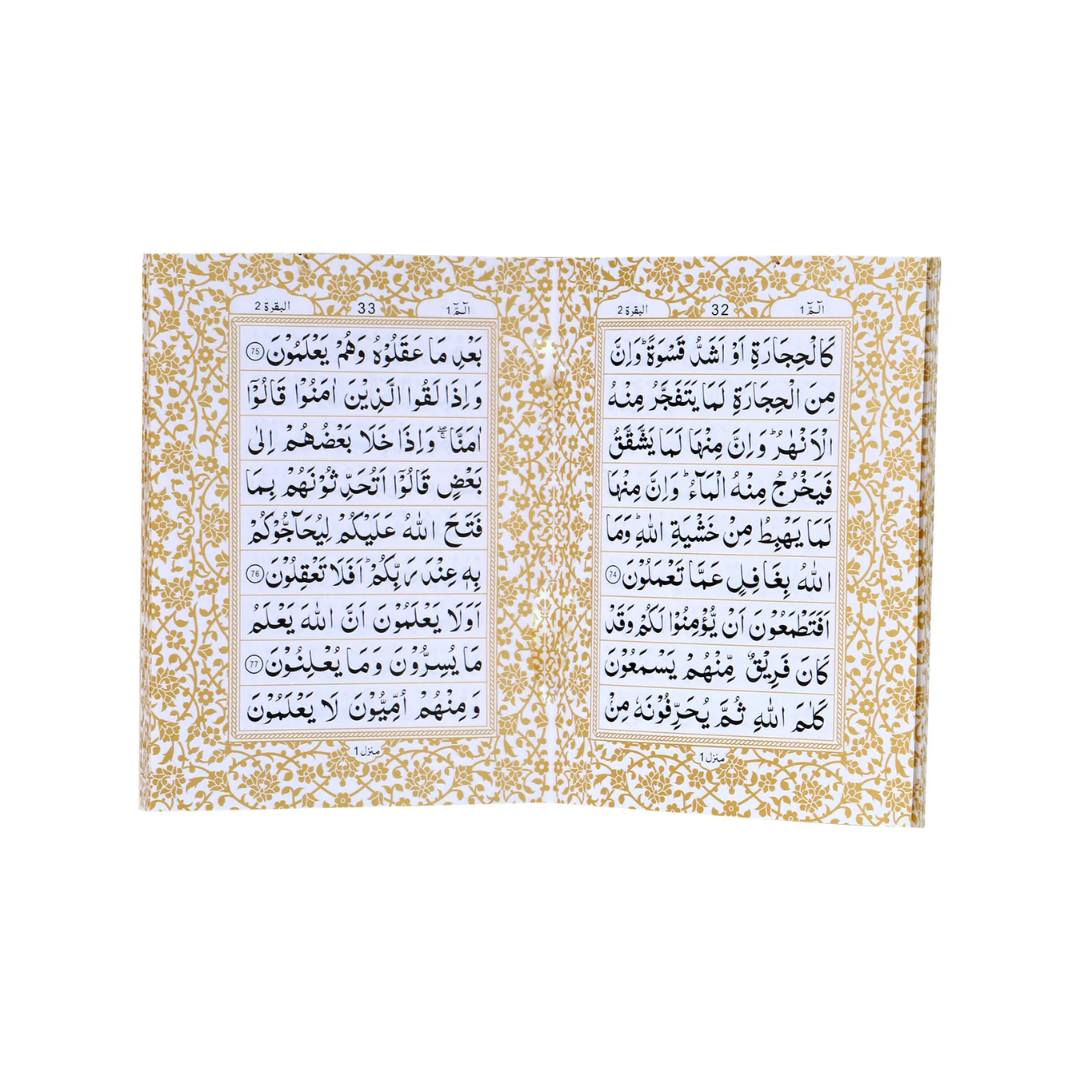 الٓمّٓ 1
32
البقرة 2
كَالْحِجَارَةِ اَوْ اَشَدُّ قَسْوَةً ؕ وَاِنَّ
مِنَ الْحِجَارَةِ لَمَا يَتَفَجَّرُ مِنْهُ
الْاَنْهٰرُ ؕ وَاِنَّ مِنْهَا لَمَا يَشَّقَّقُ
فَيَخْرُجُ مِنْهُ الْمَآءُ ؕ وَاِنَّ مِنْهَا
لَمَا يَهْبِطُ مِنْ خَشْيَةِ اللّٰهِ ؕ وَمَا
اللّٰهُ بِغَافِلٍ عَمَّا تَعْمَلُوْنَ 74
اَفَتَطْمَعُوْنَ اَنْ يُّؤْمِنُوْا لَكُمْ وَقَدْ
كَانَ فَرِيْقٌ مِّنْهُمْ يَسْمَعُوْنَ
كَلٰمَ اللّٰهِ ثُمَّ يُحَرِّفُوْنَهٗ مِنْۢ
منزل 1
الٓمّٓ 1
33
البقرة 2
بَعْدِ مَا عَقَلُوْهُ وَهُمْ يَعْلَمُوْنَ 75
وَاِذَا لَقُوا الَّذِيْنَ اٰمَنُوْا قَالُوْۤا
اٰمَنَّا ۖۚ وَاِذَا خَلَا بَعْضُهُمْ اِلٰى
بَعْضٍ قَالُوْۤا اَتُحَدِّثُوْنَهُمْ بِمَا
فَتَحَ اللّٰهُ عَلَيْكُمْ لِيُحَآجُّوْكُمْ
بِهٖ عِنْدَ رَبِّكُمْ ؕ اَفَلَا تَعْقِلُوْنَ 76
اَوَلَا يَعْلَمُوْنَ اَنَّ اللّٰهَ يَعْلَمُ
مَا يُسِرُّوْنَ وَمَا يُعْلِنُوْنَ 77
وَمِنْهُمْ اُمِّيُّوْنَ لَا يَعْلَمُوْنَ
منزل 1